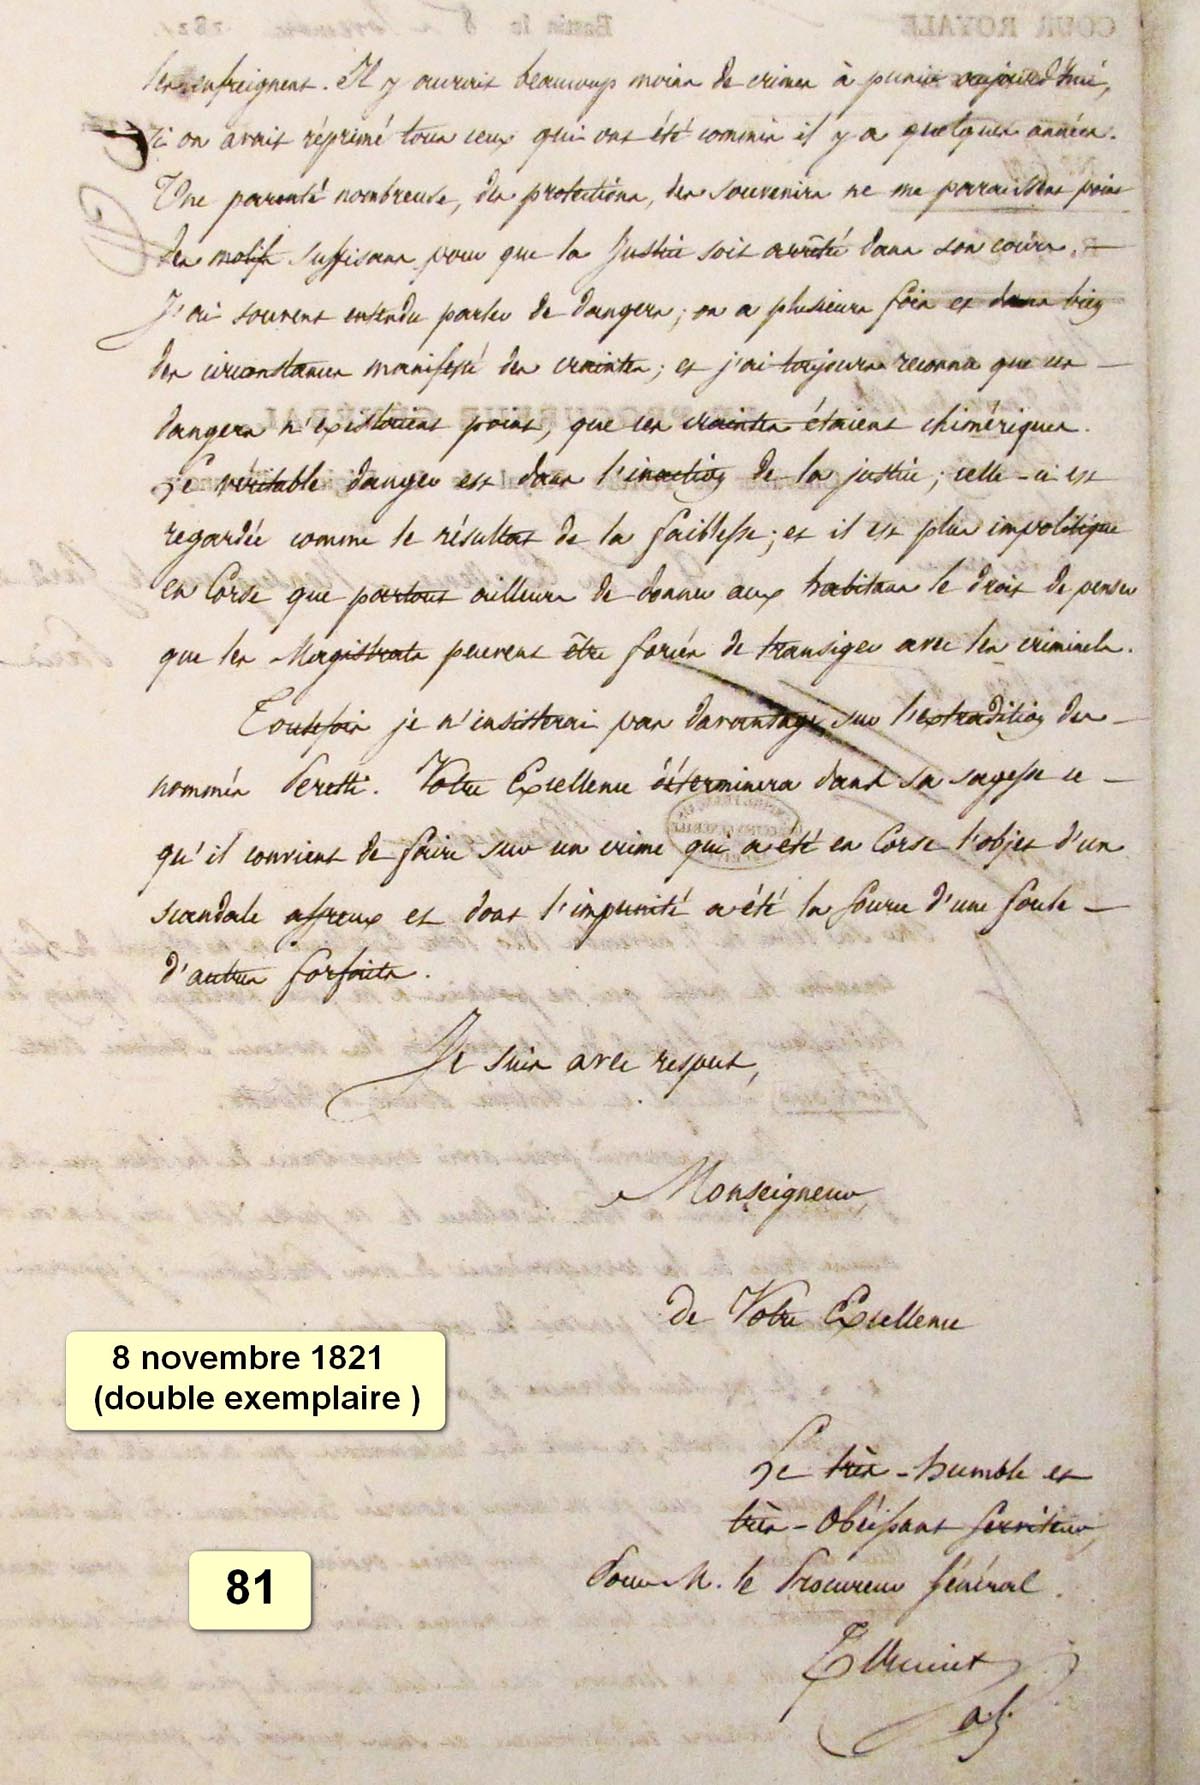 les enfreignent. Il y aurait beaucoup moins de crimes à punir aujourd'hui,
si on avait réprimé tous ceux qui ont été commis il y a quelques années.
Une parenté nombreuse, des protections, des souvenirs ne me paraissent point
des motifs suffisans pour que la Justice soit arrêtée dans son cours. —
J'ai souvent entendu parler de dangers; on a plusieurs fois et dans bien
des circonstances manifesté des craintes; et j'ai toujours reconnu que ces —
dangers n'existaient point, que ces craintes étaient chimériques.
Le véritable danger est dans l'inaction de la justice; celle-ci est
regardée comme le résultat de la faiblesse; et il est plus impolitique
en Corse que partout ailleurs de donner aux habitans le droit de penser
que les Magistrats peuvent être forcés de transiger avec les criminels.
Toutefois je n'insisterai pas davantage sur l'extradition des —
nommés Peretti. Votre Excellence déterminera dans sa sagesse ce —
qu'il convient de faire sur un crime qui a été en Corse l'objet d'un
scandale affreux et dont l'impunité a été la source d'une foule —
d'autres forfaits.
Je suis avec respect,
Monseigneur,
de Votre Excellence
8 novembre 1821
(double exemplaire )
Le très-humble et
très-Obéissant Serviteur,
81
Pour M. le Procureur Général.